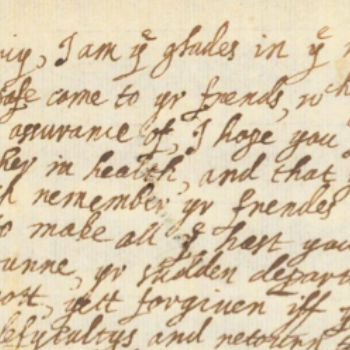 I am yᵉ glades in yᵉ
come to yr frends, wᶜʰ
assurance of, I hope you
in health, and that
remember yr frendes
to make all yᵉ hast you
yr sudden depar
not forgiven iff
and retourn